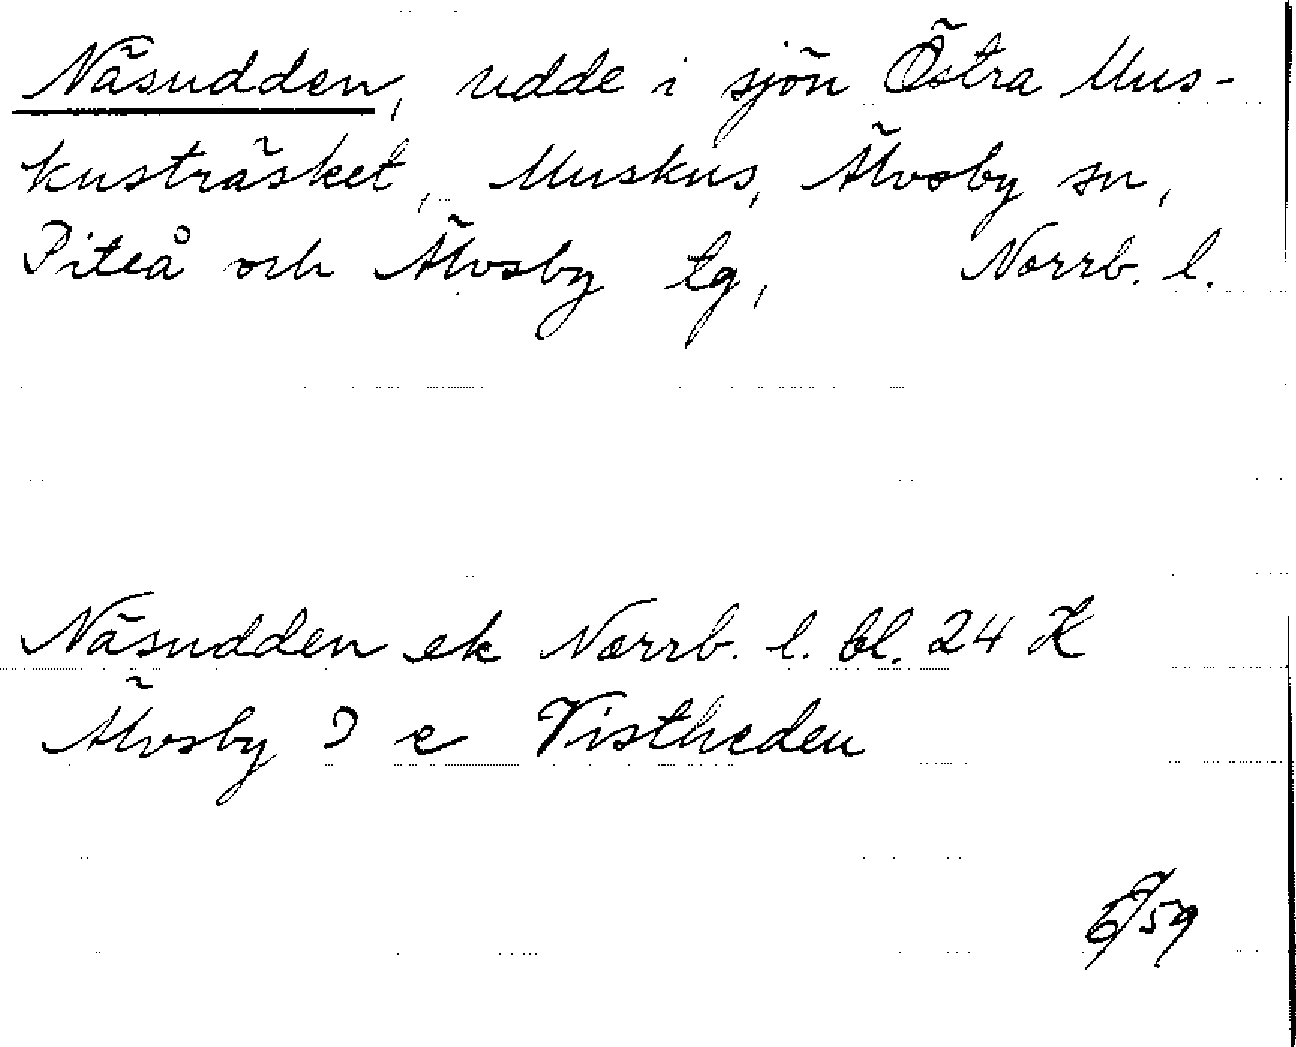 Näsudden, udde i sjön Östra Mus-
kusträsket, Muskus, Älvsby sn,
Piteå och Älvsby tg, Norrb. l.
Näsudden ek Norrb. l. bl. 24
Älvsby e Vistheden
59